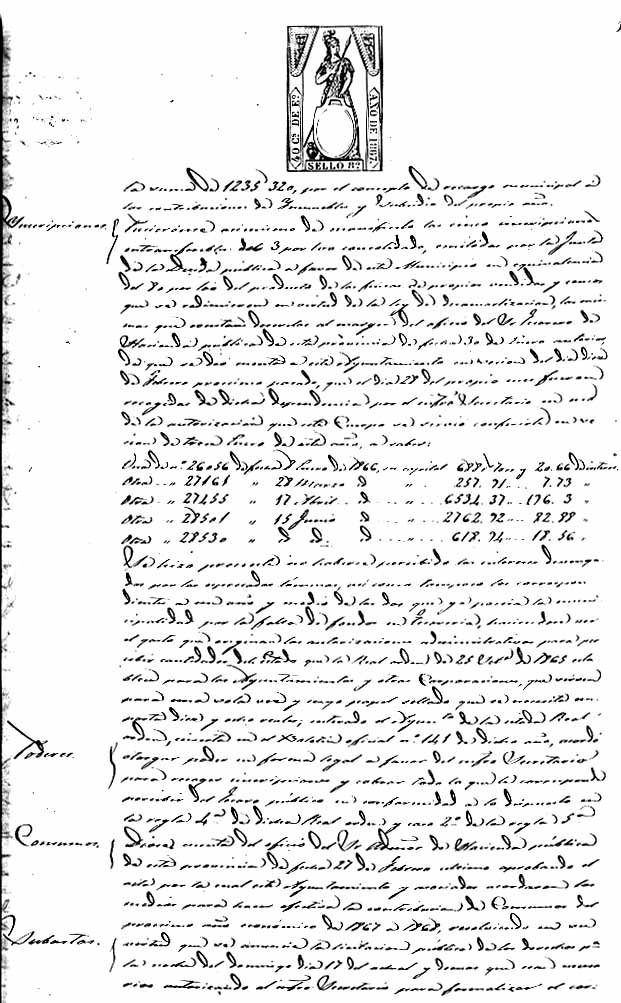 40 Cs DE Eo
AÑO DE 1867
SELLO 8º
la suma de 1235"320, por el concepto de recargo municipal a
las contribuciones de Inmuebles y Subsidio del propio año.
Inscripciones. Hicieronse asimismo de manifiesto las cinco inscripciones
intransferibles del 3 por ciento consolidado, emitidas por la Junta
de la Deuda pública a favor de este Municipio en equivalencia
del 80 por 100 del producto de las fincas de propios vendidas y censos
que se redimieron en virtud de la ley de desamortizacion, las mis
mas que constan descritas al margen del oficio del Sr Tesorero de
Hacienda pública de esta provincia de fecha 30 de Enero anterior,
de que se dió cuenta a este Ayuntamiento en sesion del dia diez
de Febrero procsimo pasado, que el dia 28 del propio mes fueron
recogidas de dicha dependencia por el infro Secretario en uso
de la autorizacion que este Cuerpo se sirvió conferirle en se
sion de trece Enero de este año, a saber:
Una de nº 26056 de fecha 8 Enero de 1866, su capital 688 y 20.66
Otra " 27161 " 28 Marzo d " 257.71 7.73 "
Otra " 27455 " 17 Abril d " 6534.37 196.3 "
Otra " 28501 " 15 Junio d " 2762.92 82.88 "
Otra " 28530 " d d. d " 618.74 18.56 "
Se hizo presente no haberse percibido los intereses devenga
dos por las espresadas láminas, asi como tampoco los correspon
dientes a un año y medio de las dos que ya poseia la muni
cipalidad por la falta de fondos en Tesoreria, haciendose ver
el gasto que originan las autorizaciones administrativas para per
cibir cantidades del Estado que la Real orden de 25 de 1865 esta
blece para los Ayuntamientos y otras Corporaciones, que sirven
para una sola vez y cuyo papel sellado que se necesita im
porta diez y ocho reales; enterado el Ayunto de la citada Real
orden, inserta en el Boletin oficial nº 141 de dicho año, acordó
Poderes. otorgar poder en forma legal a favor del infro Secretario
para recoger inscripciones y cobrar todo lo que le corresponda
percibir del Tesoro público en conformidad a lo dispuesto en
la regla 4ª de dicha Real orden y caso 2º de la regla 5ª
Consumos. Diose cuenta del oficio del Sr Admor de Hacienda pública
de esta provincia de fecha 27 de Febrero ultimo aprobando el
acta por la cual este Ayuntamiento y asociados acordaron los
medios para hacer efectiva la contribucion de Consumos del
procsimo año económico de 1867 a 1868, resolviendo en su
Subastas. virtud que se anuncie la licitacion pública de los derechos pa
la noche del Domingo dia 17 del actual y demas que sean necesa
rias autorizando al infro Secretario para formalizar el cor-